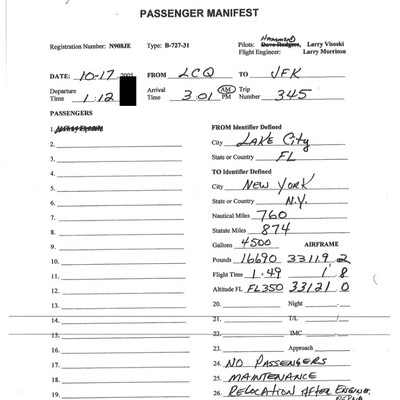 PASSENGER MANIFEST
HAMMOND
Registration Number: N908JE Type: B-727-31 Pilots: Dave Rodgers, Larry Visoski
Flight Engineer: Larry Morrison
DATE: 10-17 2005 FROM LCQ TO JFK
Departure Time 1:12 Arrival Time 3:01 AM PM Trip Number 345
PASSENGERS
1. FROM Identifier Defined
2. City LAKE City
3. State or Country FL
4. TO Identifier Defined
5. City NEW YORK
6. State or Country N.Y.
7. Nautical Miles 760
8. Statute Miles 874
9. Gallons 4500 AIRFRAME
10. Pounds 16690 33119 2
11. Flight Time 1+49 1 8
12. Altitude FL FL350 33121 0
13. 20. Night
14. 21. I/L /
15. 22. IMC
16. 23. Approach
17. 24. NO PASSENGERS
18. 25. MAINTENANCE
19. 26. RELOCATION AFTER ENGINE